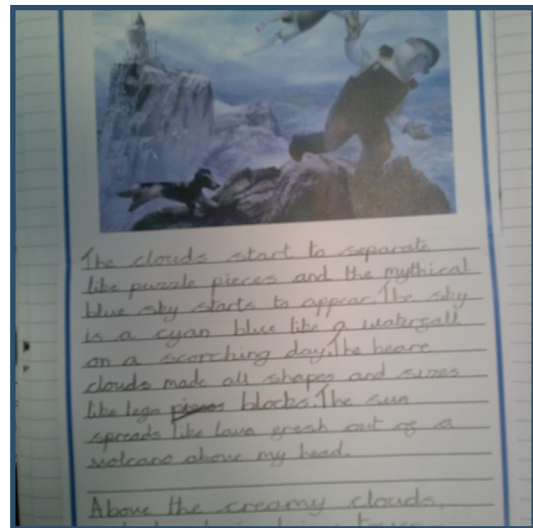 The clouds start to separate
like puzzle pieces and the mythical
blue sky starts to appear. The sky
is a cyan blue like a waterfall
on a scorching day. The beare
clouds made all shapes and sizes
like lego pieces blocks. The sun
spreads like lava fresh out of a
volcano above my head.
Above the creamy clouds,